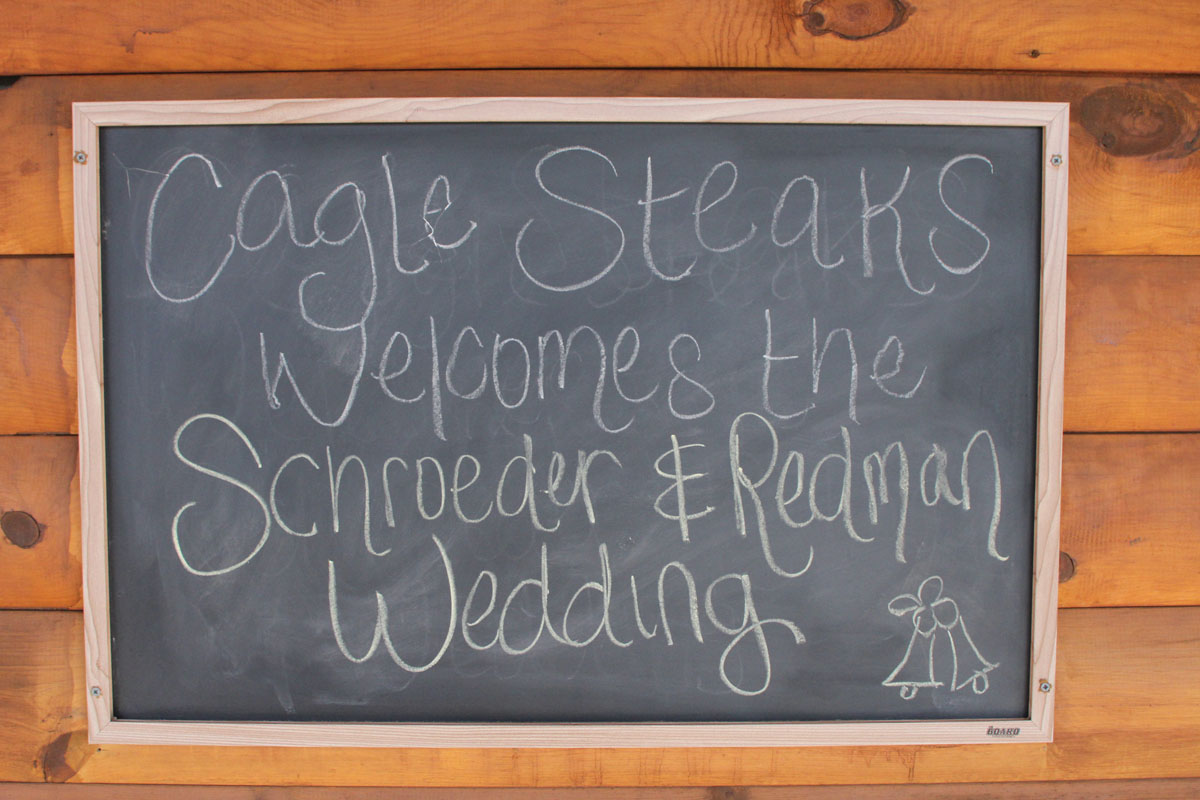 Cagle Steaks
Welcomes the
Schroeder & Redman
Wedding
BOARD